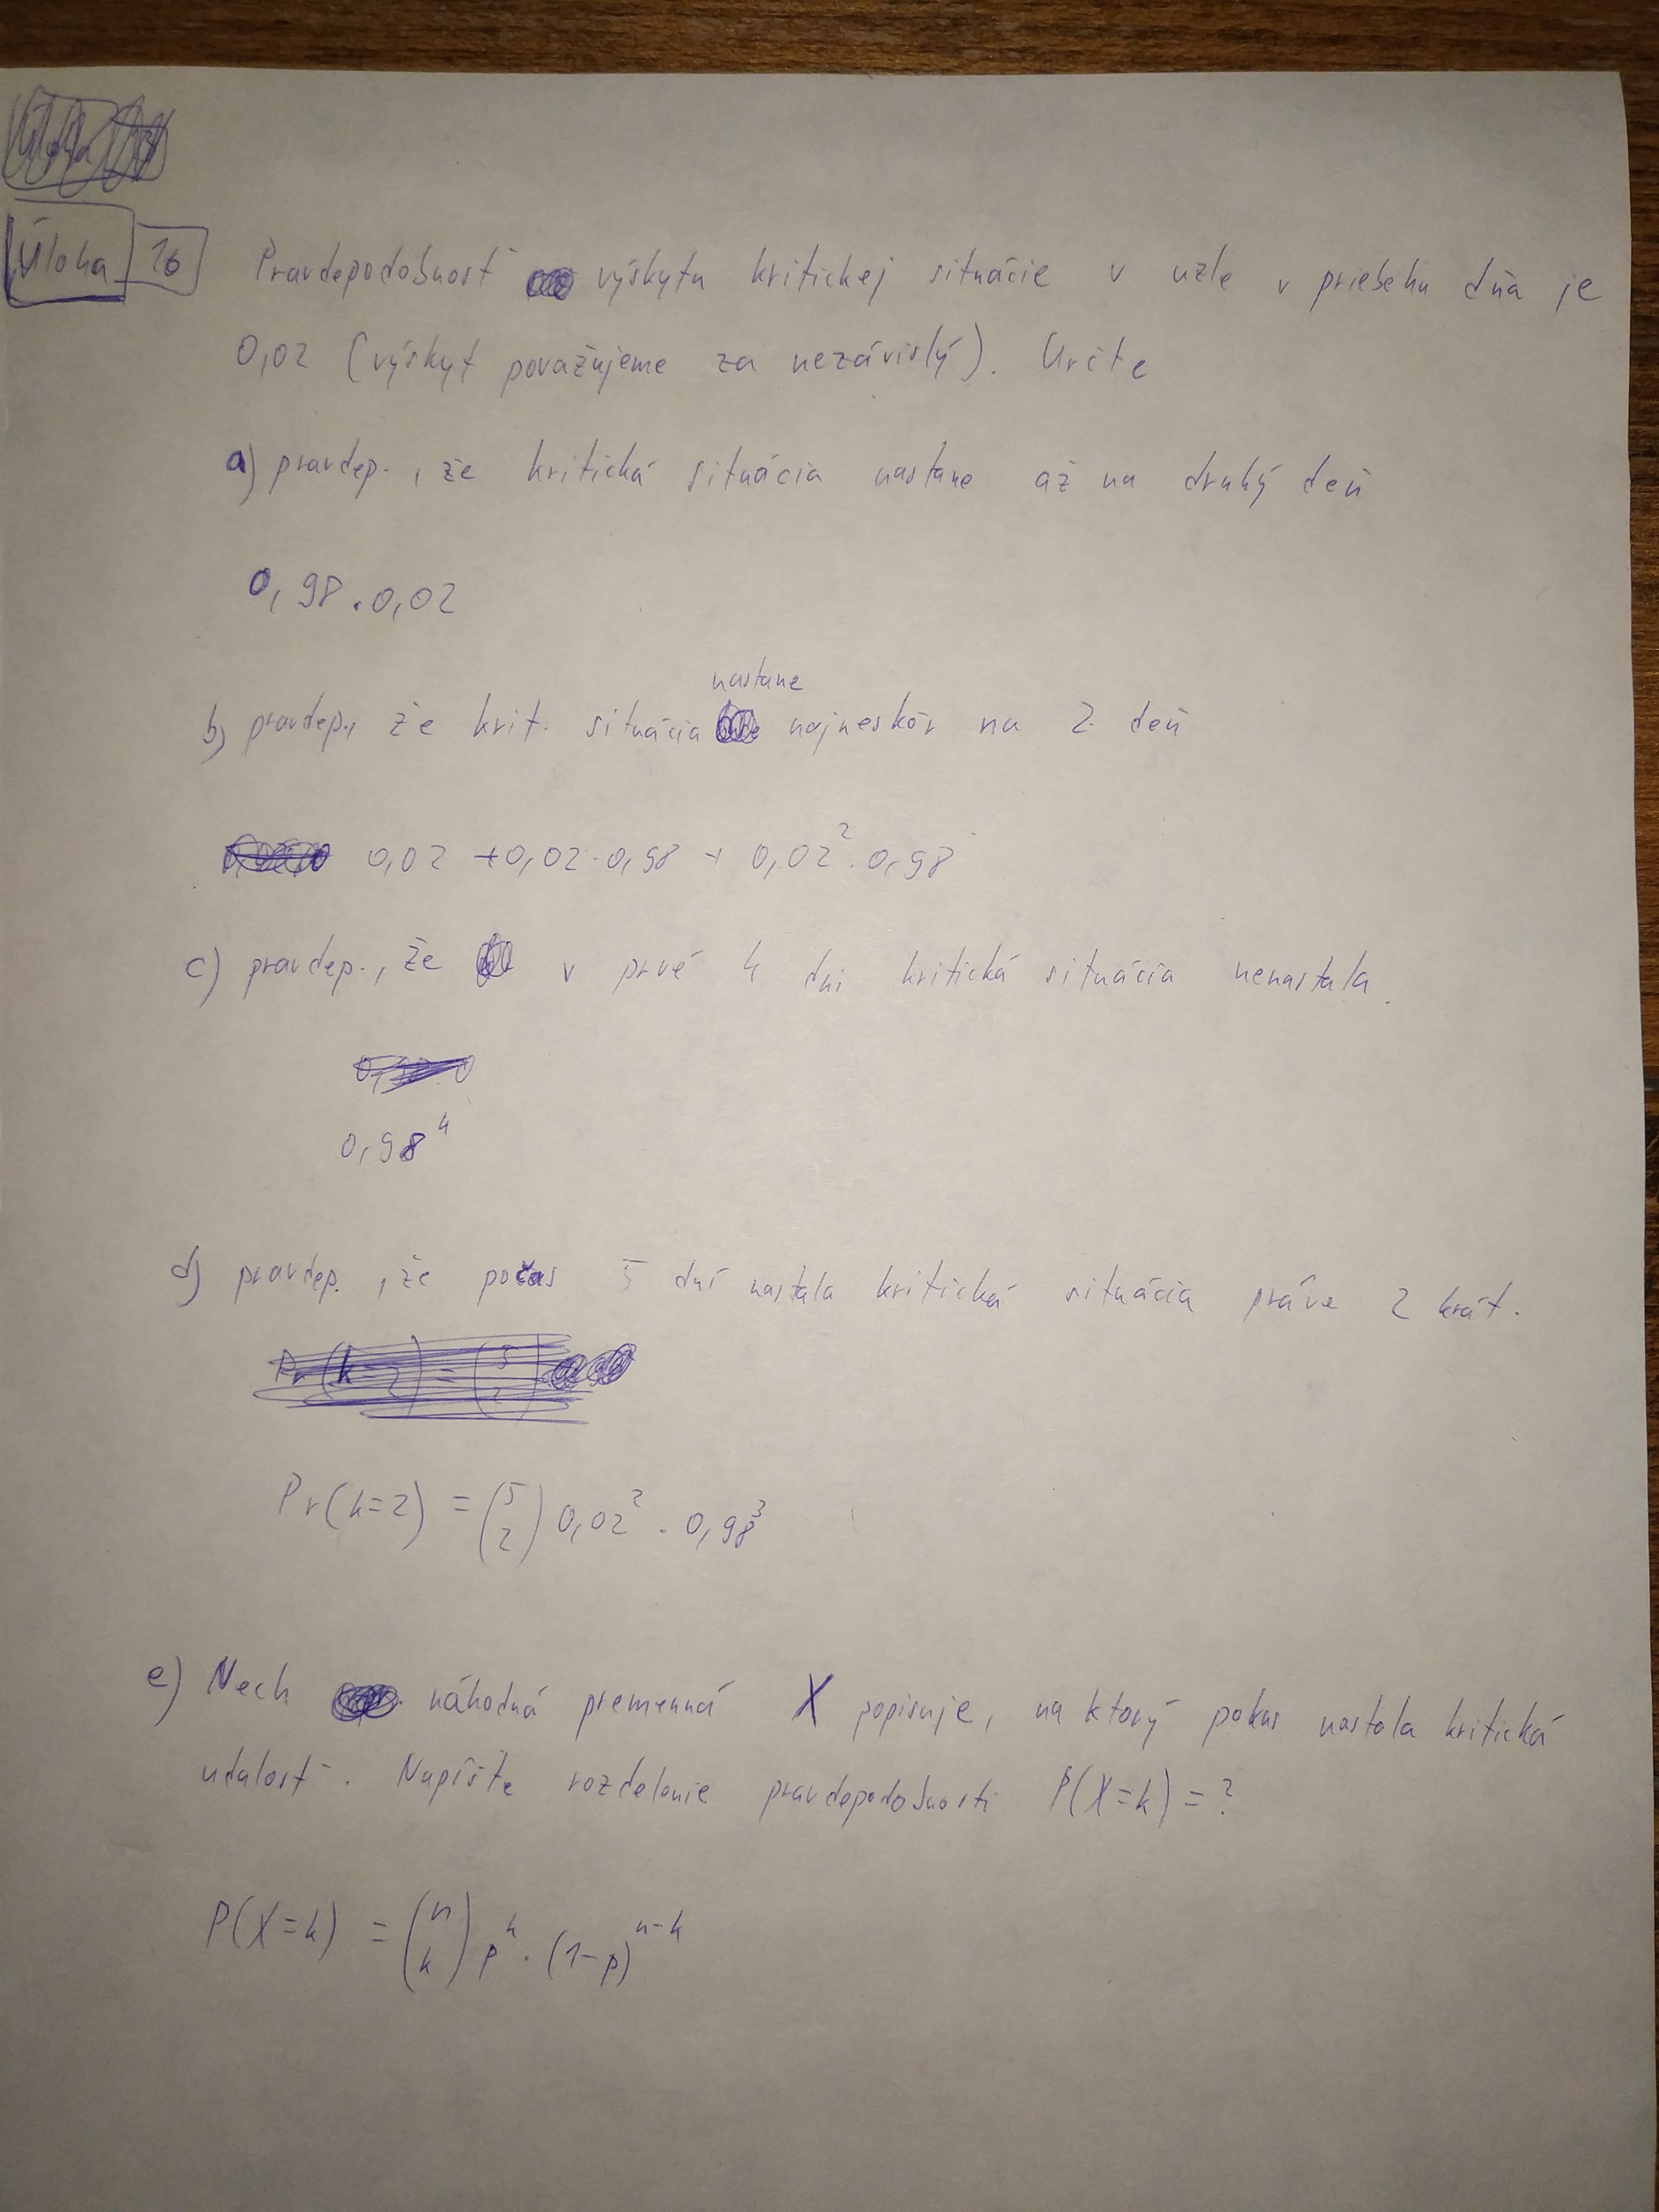 Úloha 16 Pravdepodobnosť výskytu kritickej situácie v uzle v priebehu dňa je
0,02 (výskyt považujeme za nezávislý). Určte
a) pravdep., že kritická situácia nastane až na druhý deň
0,98 . 0,02
nastane
b) pravdep., že krit. situácia najneskôr na 2. deň
0,02 + 0,02 · 0,98 + 0,02² · 0,98
c) pravdep., že v prvé 4 dni kritická situácia nenastala.
0,98⁴
d) pravdep., že počas 5 dní nastala kritická situácia práve 2 krát.
Pr(k=2) = (5 2) 0,02² · 0,98³
e) Nech náhodná premenná X popisuje, na ktorý pokus nastala kritická
udalosť. Napíšte rozdelenie pravdepodobnosti P(X=k) = ?
P(X=k) = (n k) p^k · (1-p)^{n-k}